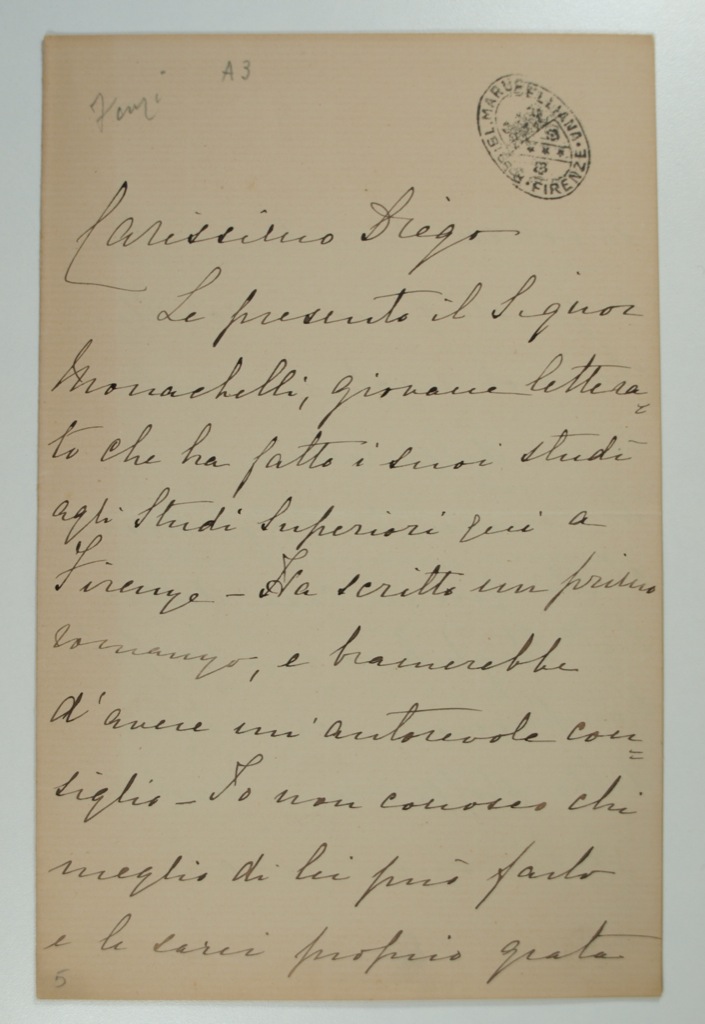 A3
BIBL. MARUCELLIANA • FIRENZE •
Carissimo Diego
Le presento il Signor
Monachelli, giovane lettera=
to che ha fatto i suoi studi
agli Studi Superiori qui a
Firenze – Ha scritto un primo
romanzo, e bramerebbe
d'avere un'autorevole con=
siglio – Io non conosco chi
meglio di lei può farlo
e le sarei proprio grata
5